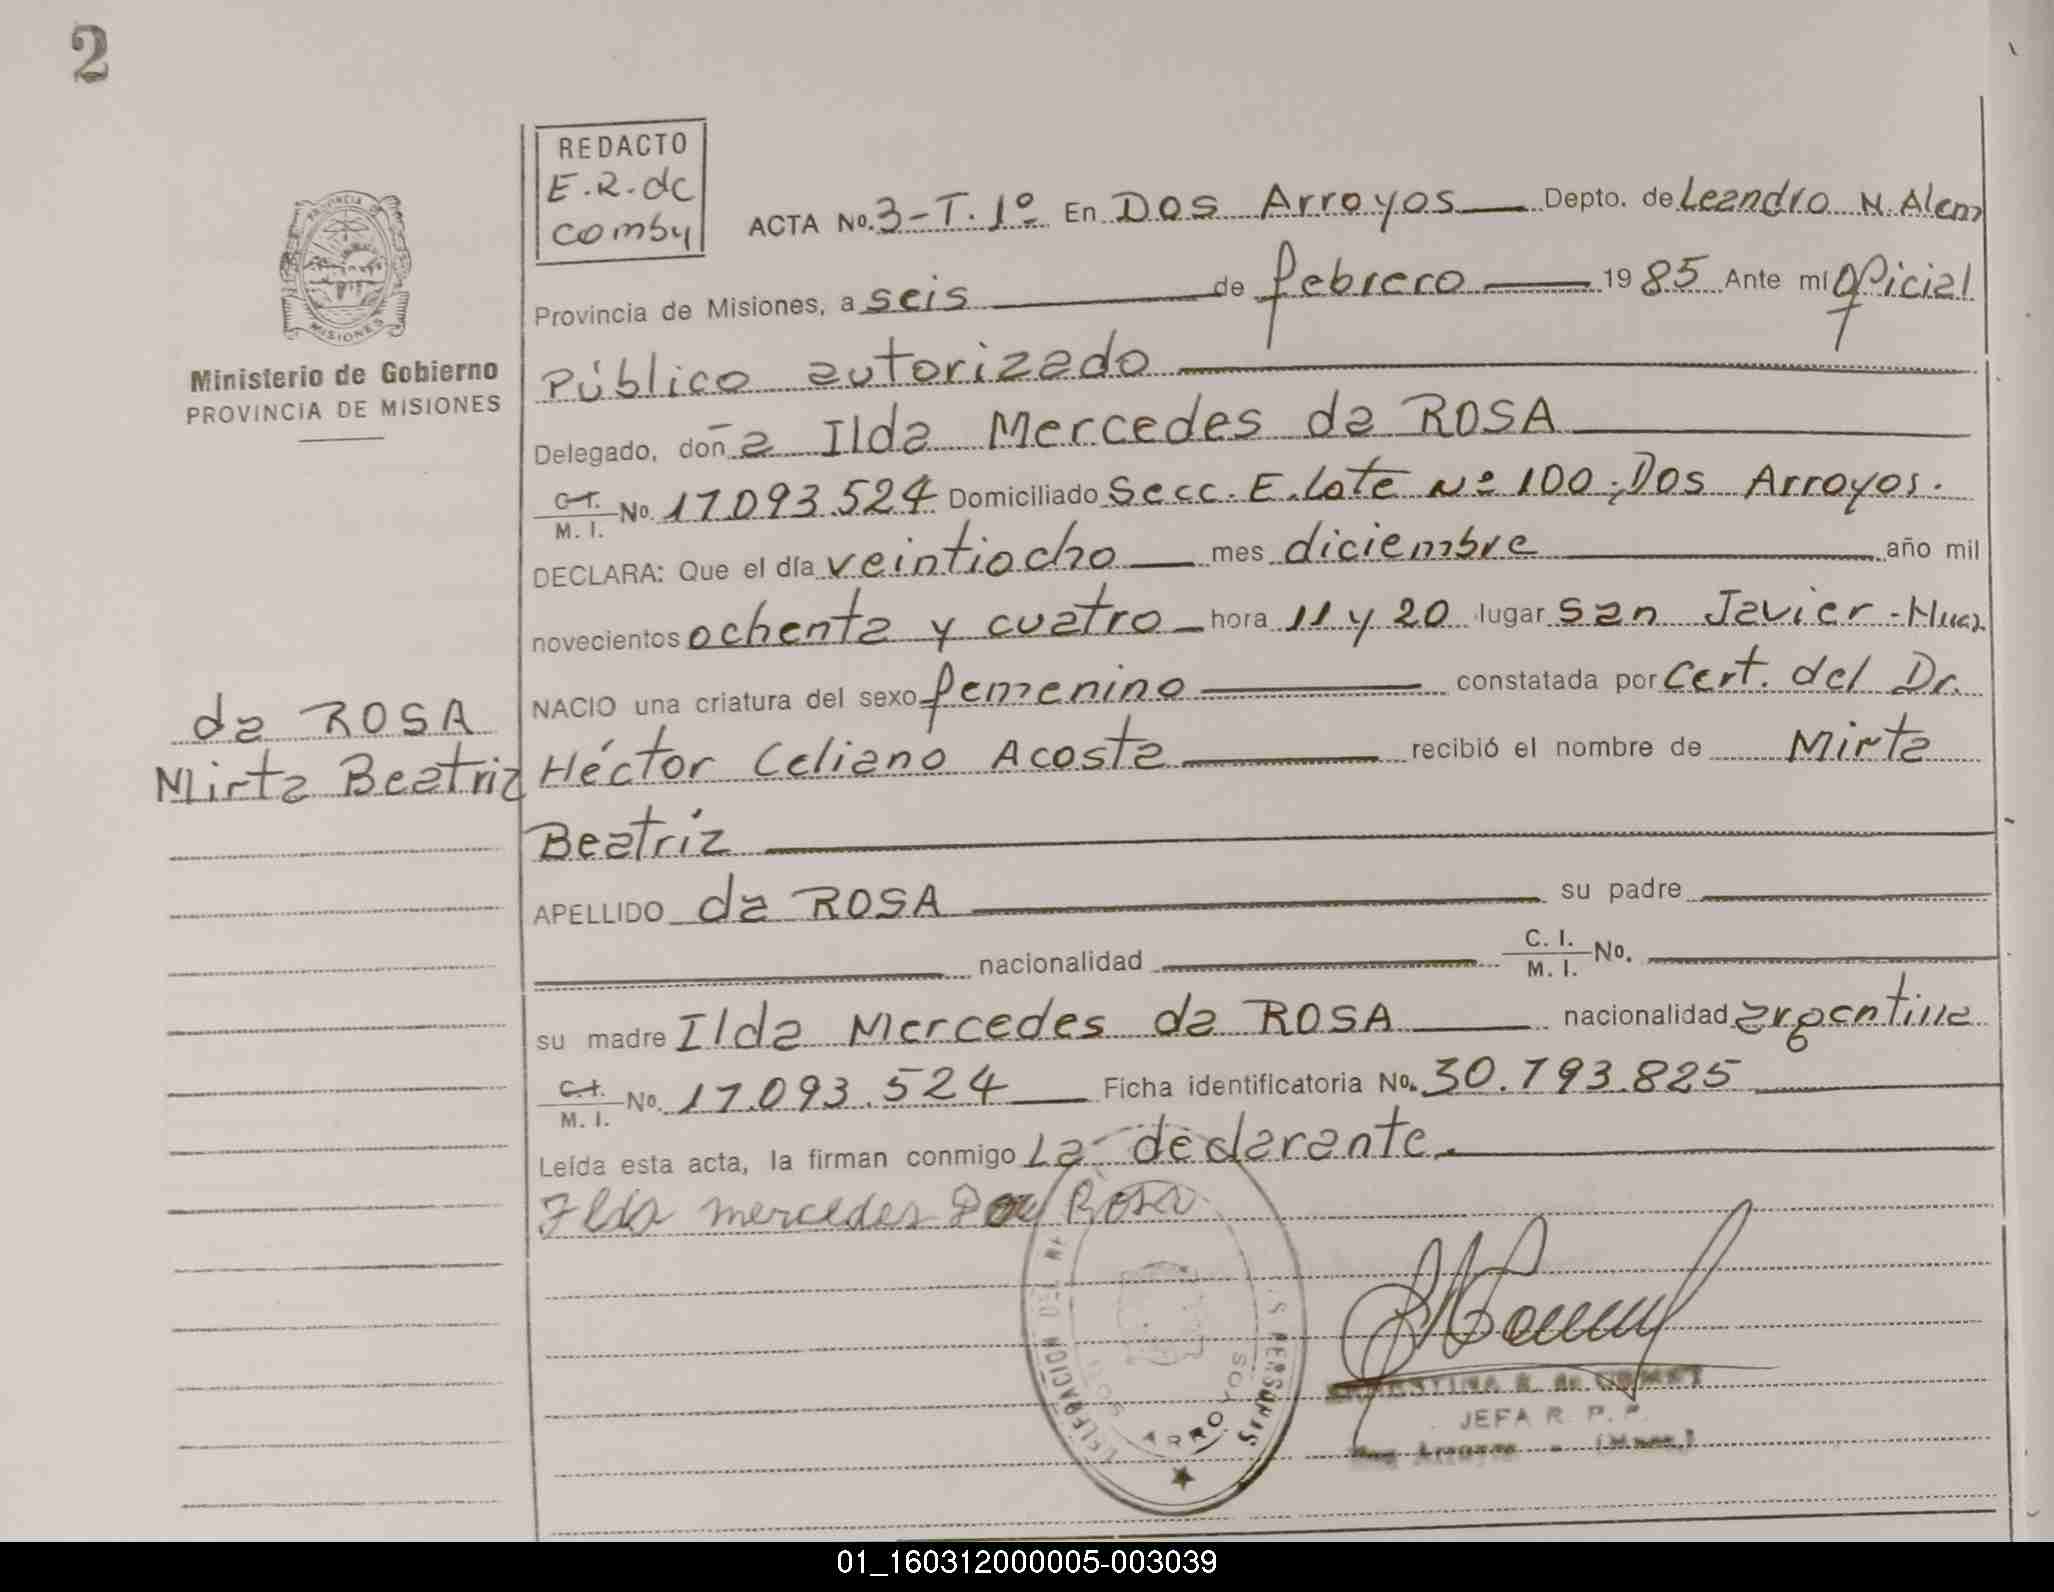 2
REDACTO
E.R. de
comby
ACTA No. 3-T. 1º En Dos Arroyos Depto. de Leandro N. Alem
Provincia de Misiones, a seis de febrero 1985 Ante mí Oficial
Público autorizado
Ministerio de Gobierno
PROVINCIA DE MISIONES
Delegado, doña Ilda Mercedes da ROSA
C.I. M. I. No. 17.093.524 Domiciliado Secc. E. Lote Nº 100; Dos Arroyos.
DECLARA: Que el día veintiocho mes diciembre año mil
novecientos ochenta y cuatro hora 11 y 20 lugar San Javier -
NACIO una criatura del sexo femenino constatada por Cert. del Dr.
da ROSA
Mirta Beatriz
Héctor Celiano Acosta recibió el nombre de Mirta
Beatriz
APELLIDO da ROSA su padre
nacionalidad C. I. M. I. No.
su madre Ilda Mercedes da ROSA nacionalidad argentina
C.I. M. I. No. 17.093.524 Ficha identificatoria No. 30.793.825
Leída esta acta, la firman conmigo La declarante.
Ilda mercedes Da Rosa
JEFA R. P. P.
01_160312000005-003039